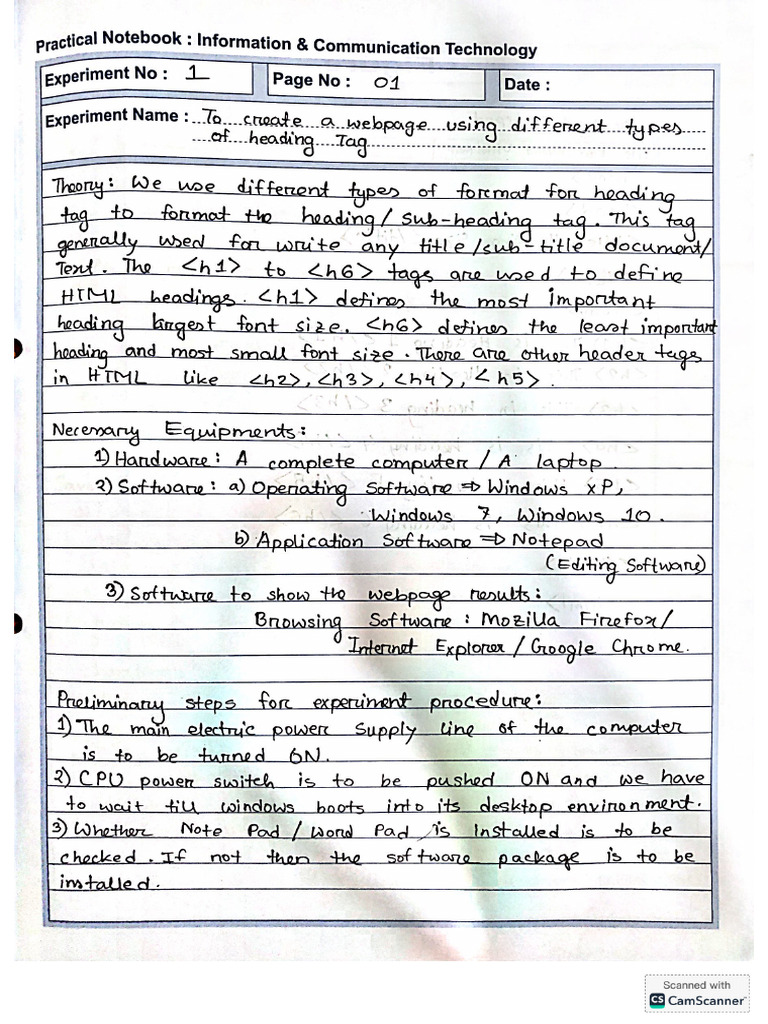 Practical Notebook : Information & Communication Technology
Experiment No : 1
Page No : 01
Date :
Experiment Name : To create a webpage using different types
of heading Tag
Theory: We use different types of format for heading
tag to format the heading/ sub-heading tag. This tag
generally used for write any title/sub-title document/
Text. The <h1> to <h6> tags are used to define
HTML headings. <h1> defines the most important
heading largest font size. <h6> defines the least important
heading and most small font size. There are other header tags
in HTML like <h2>, <h3>, <h4>, <h5>.
Necessary Equipments:
1) Hardware: A complete computer / A laptop.
2) Software: a) Operating Software ⇒ Windows XP,
Windows 7, Windows 10.
b) Application Software ⇒ Notepad
(Editing Software)
3) Software to show the webpage results:
Browsing Software : Mozilla Firefox/
Internet Explorer / Google Chrome.
Preliminary steps for experiment procedure:
1) The main electric power supply line of the computer
is to be turned ON.
2) CPU power switch is to be pushed ON and we have
to wait till windows boots into its desktop environment.
3) Whether Note Pad / Word Pad is installed is to be
checked. If not then the software package is to be
installed.
Scanned with
CS CamScanner